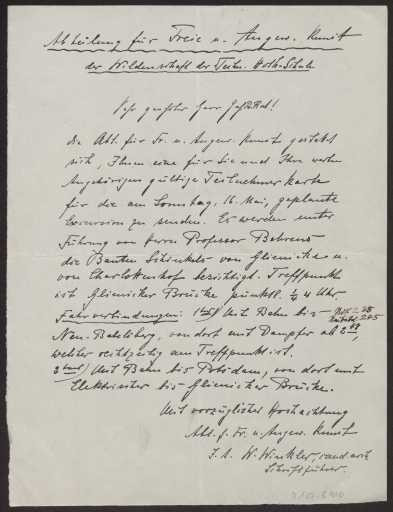 Abteilung für Freie u. Angew. Kunst
der Wildenschaft der Techn. Hoch-Schule
Sehr geehrter Herr
die Abt. für Fr. u. Angew. Kunst gestattet
sich, Ihnen eine für Sie und Ihre werten
Angehörigen gültige Teilnehmerkarte
für die am Sonntag, 16. Mai, geplante
Excursion zu senden. Es werden unter
Führung von Herrn Professor Behrens
die Bauten Schinkels von Glienicke u.
von Charlottenhof besichtigt. Treffpunkt
ist Glienicker Brücke pünktl. 1/2 4 Uhr
Fahrverbindungen: Mit Bahn bis
Neu-Babelsberg, von dort mit Dampfer ab
welcher rechtzeitig am Treffpunkt ist.
Mit Bahn bis Potsdam, von dort mit
Elektrischer bis Glienicker Brücke.
Mit vorzüglicher Hochachtung
Abt. f. Fr. u. Angew. Kunst
I. A. W. Winkler, cand. arch.
Schriftführer.